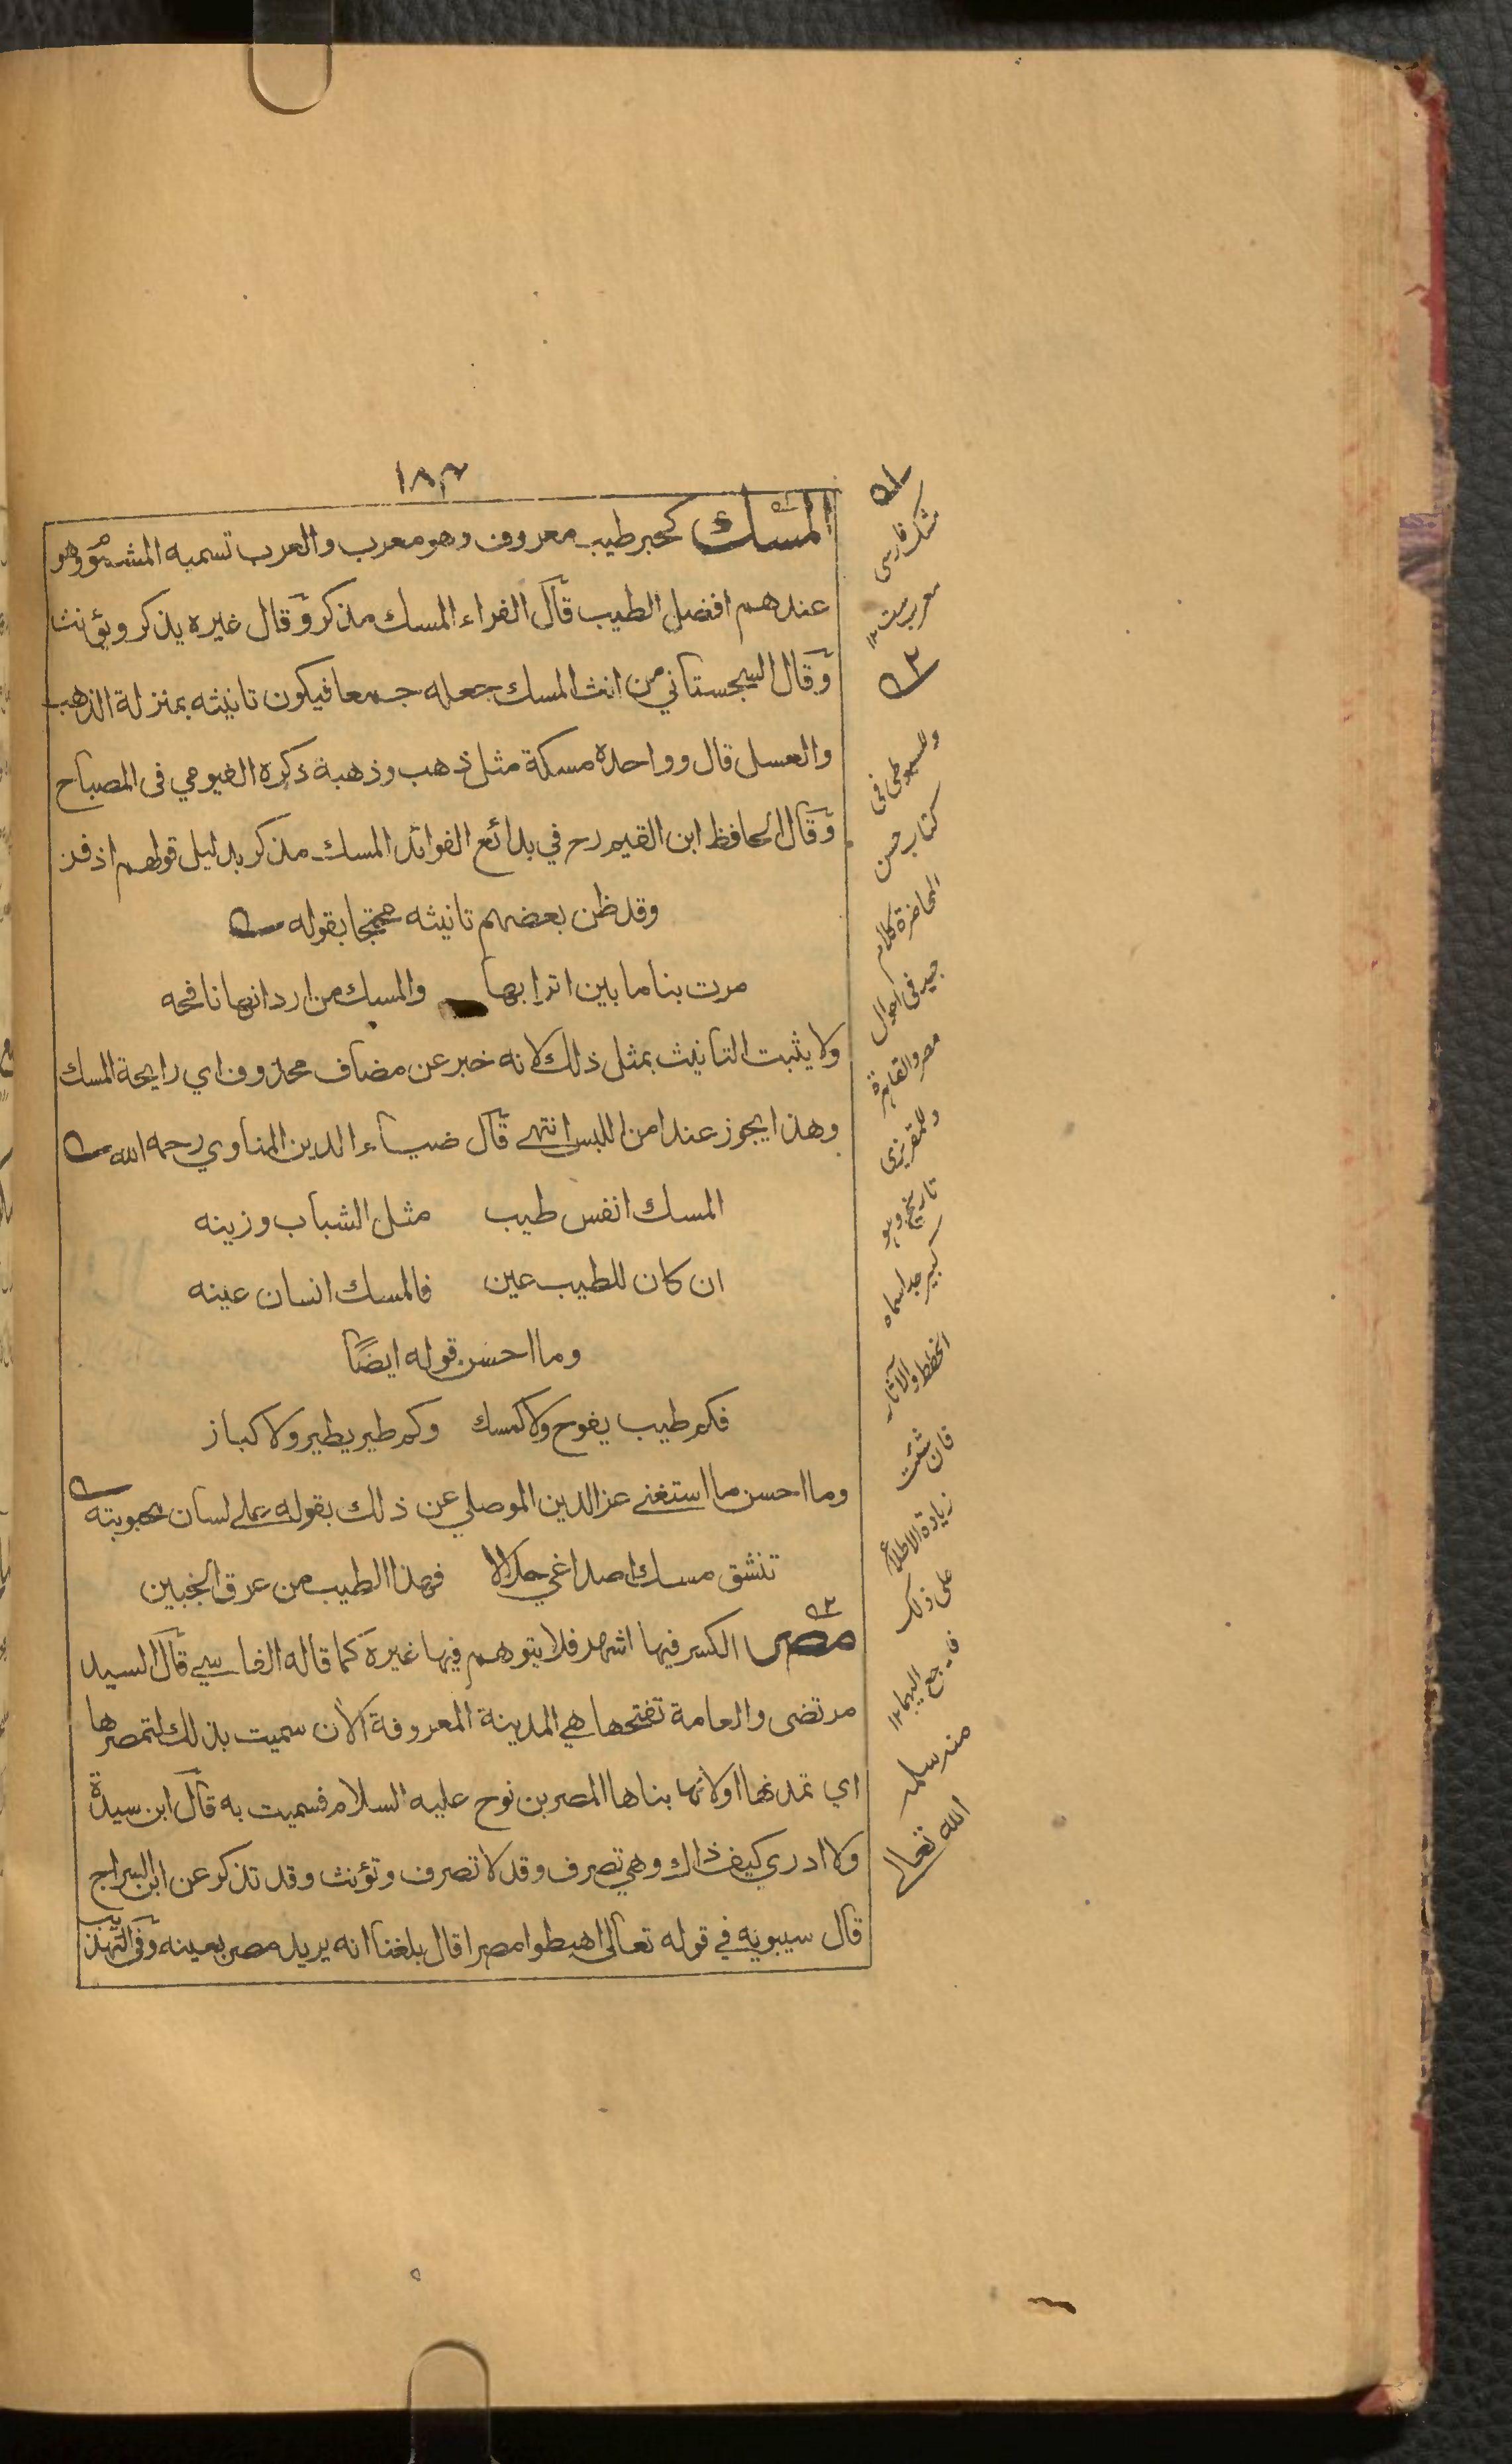 ١٨٣
المسك كحبر طيب معروف وهو معرب والعرب تسميه المشموم وهو
عندهم افضل الطيب قال الفراء المسك مذكر وقال غيره يذكر ويؤنث
وقال السجستاني من انث المسك جعله جمعا فيكون تانيثه بمنزلة الذهب
والعسل قال وواحده مسكة مثل ذهب وذهبة ذكره الفيومي فى المصباح
وقال الحافظ ابن القيم رح في بدائع الفوائد المسك مذكر بدليل قولهم اذفر
وقد ظن بعضهم تانيثه محتجا بقوله
مرت بنا ما بين اترابها والمسك من اردانها نافحه
ولا يثبت التانيث بمثل ذلك لانه خبر عن مضاف محذوف اي رايحة المسك
وهذا يجوز عند امن اللبس انتهى قال ضياء الدين المناوي رحمه الله
المسك انفس طيب مثل الشباب وزينه
ان كان للطيب عين فالمسك انسان عينه
وما احسن قوله ايضًا
فكم طيب يفوح ولا كمسك وكم طير يطير ولا كباز
وما احسن ما استغنى عز الدين الموصلي عن ذلك بقوله على لسان محبوبته
تنشق مسك اصداغي حلالا فهذا الطيب من عرق الجبين
مصر الكسر فيها اشهر فلا يتوهم فيها غيره كما قاله الفاسي قال السيد
مرتضى والعامة تفتحها هي المدينة المعروفة الآن سميت بذلك لتمصرها
اي تمدنها اولانها بناها المصر بن نوح عليه السلام فسميت به قال ابن سيدة
ولا ادري كيف ذاك وهي تصرف وقد لا تصرف وتؤنث وقد تذكر عن ابن السراج
قال سيبويه في قوله تعالى اهبطوا مصرا قال بلغنا انه يريد مصر بعينه وفى التهذيب
١
مشك فارسى
معربست ١٢
٢
وللسيوطى فى
كتاب حسن
المحاضرة كلام
جيد فى احوال
مصر والقاهرة
وللمقريزى
تاريخ وهو
كبير جدا سماه
الخطط والآثار
فان شئت
زيادة الاطلاع
على ذلك
فارجع اليهما ١٢
منه سلمه
الله تعالى